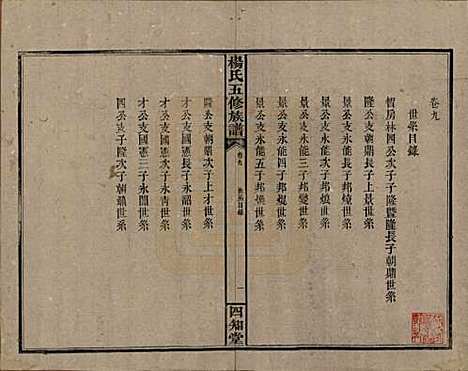 卷九
世系目錄
智房林四公次子子隆暨隆長子朝鼎世系
隆公支朝鼎長子上景世系
景公支永能長子邦 世系
景公支永能次子邦 世系
景公支永能三子邦變世系
景公支永能四子邦焜世系
景公支永能五子邦 世系
楊氏五修族譜
卷九
世系目錄
一
四知堂
隆公支朝鼎次子上才世系
才公支國憲長子永韶世系
才公支國憲次子永青世系
才公支國憲三子永開世系
四公支子隆次子朝 世系